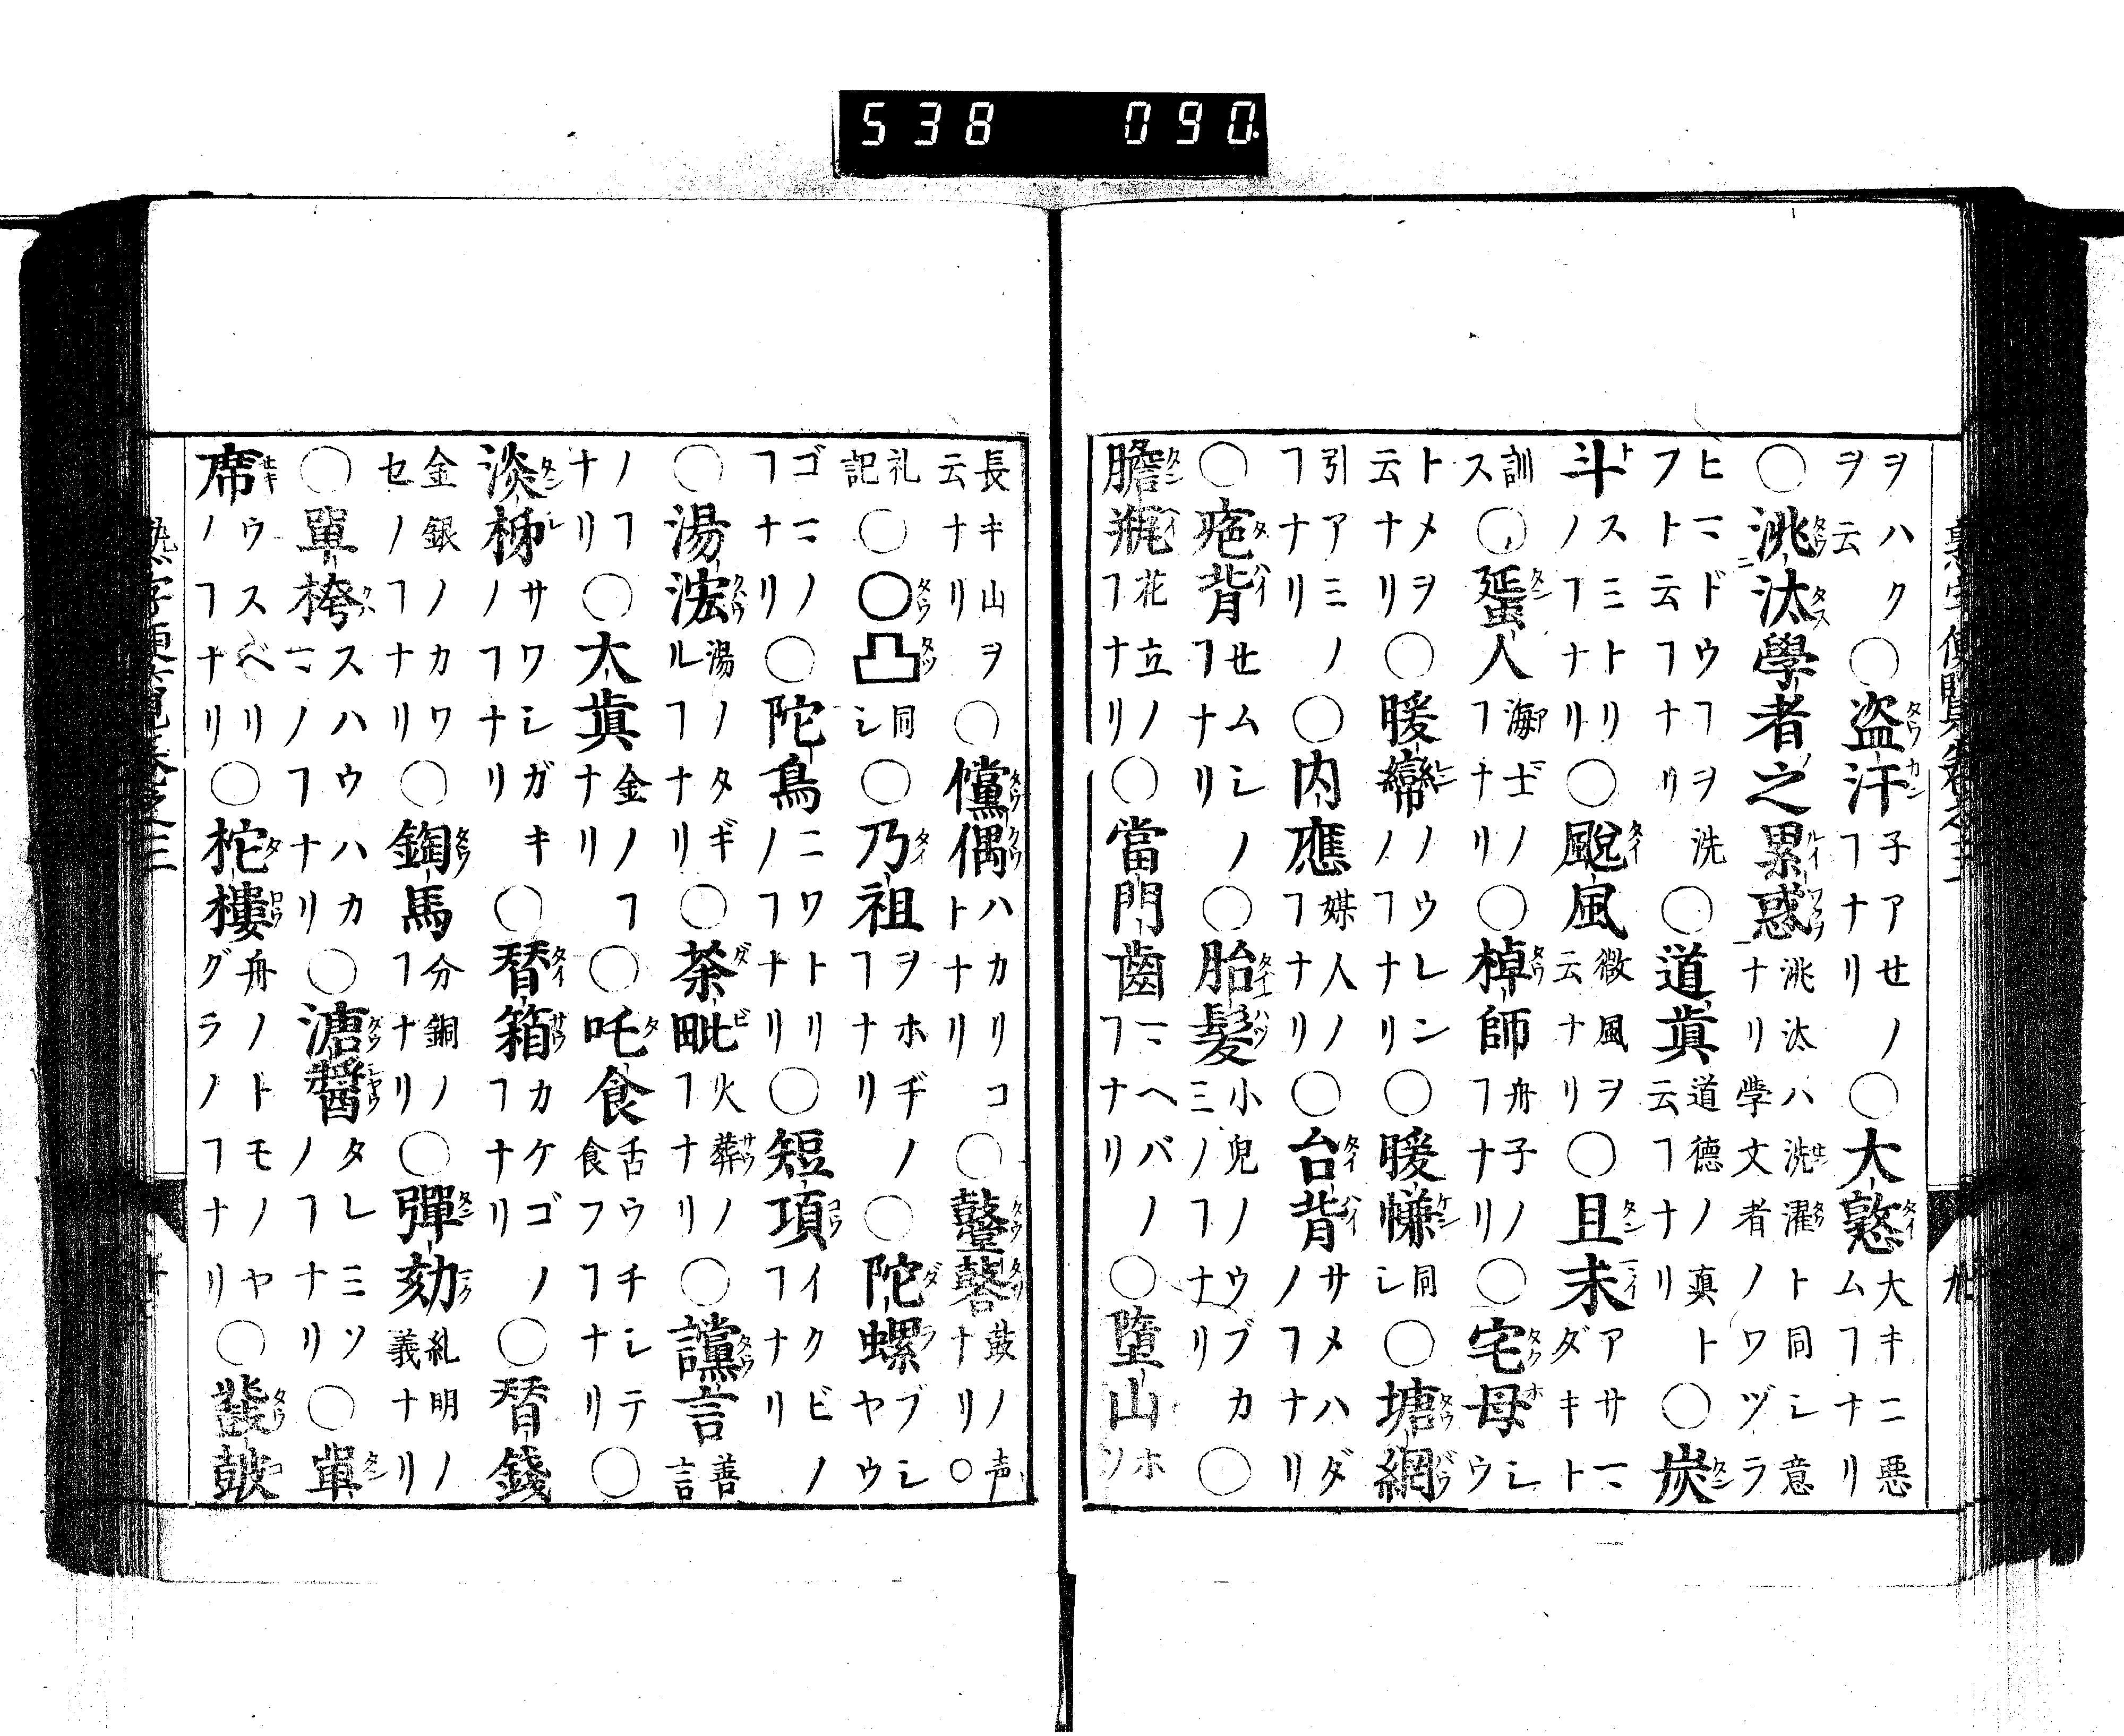 538 090
ヲハク
ヲ云 ○盗汗 子アせノ
ヿナリ ○大憝 大キニ悪
ムヿナリ
○洮汰學者之累惑 洮汰ハ洗濯ト同シ意
ナリ学文者ノワヅラ
ヒマドウヿヲ洗
フト云ヿナリ ○道眞 道德ノ真ト
云ヿナリ ○炭
斗 スミトリ
ノヿナリ ○颰風 微風ヲ
云ナリ ○且未 アサマ
ダキト
訓
ス ○蜑人 海士ノ
ヿナリ ○棹師 舟子ノ
ヿナリ ○宅母 シ
ウ
トメヲ
云ナリ ○暖簾 ノウレン
ノヿナリ ○暖㡘 同
シ ○塘網
引アミノ
ヿナリ ○内應 媒人ノ
ヿナリ ○台背 サメハダ
ノヿナリ
○疤背 せムシノ
ヿナリ ○胎髮 小兒ノウブカ
ミノヿナリ ○
膽瓶 花立ノ
ヿナリ ○當門齒 マヘバノ
ヿナリ ○墮山 ホ
ソ
長キ山ヲ
云ナリ ○儻偶 ハカリコ
トナリ ○鼞鼛 鼓ノ声
ナリ ○
礼
記 ○〇凸 同
シ ○乃祖 ヲホヂノ
ヿナリ ○陀螺 ブシ
ヤウ
ゴマノ
ヿナリ ○陀鳥 ニワトリ
ノヿナリ ○短項 イクビノ
ヿナリ
○湯浤 湯ノタギ
ルヿナリ ○荼毗 火葬ノ
ヿナリ ○讜言 善
言
ノヿ
ナリ ○太眞 金ノヿ
ナリ ○吒食 舌ウチシテ
食フヿナリ ○
淡柹 サワシガキ
ノヿナリ ○替箱 カケゴノ
ヿナリ ○替錢
金銀ノカワ
セノヿナリ ○鋾馬 分銅ノ
ヿナリ ○彈劾 糺明ノ
義ナリ
○單袴 スハウハカ
マノヿナリ ○溏醬 タレミソ
ノヿナリ ○單
席 ウスベリ
ノヿナリ ○柁樓 舟ノトモノヤ
グラノヿナリ ○鼗鼓